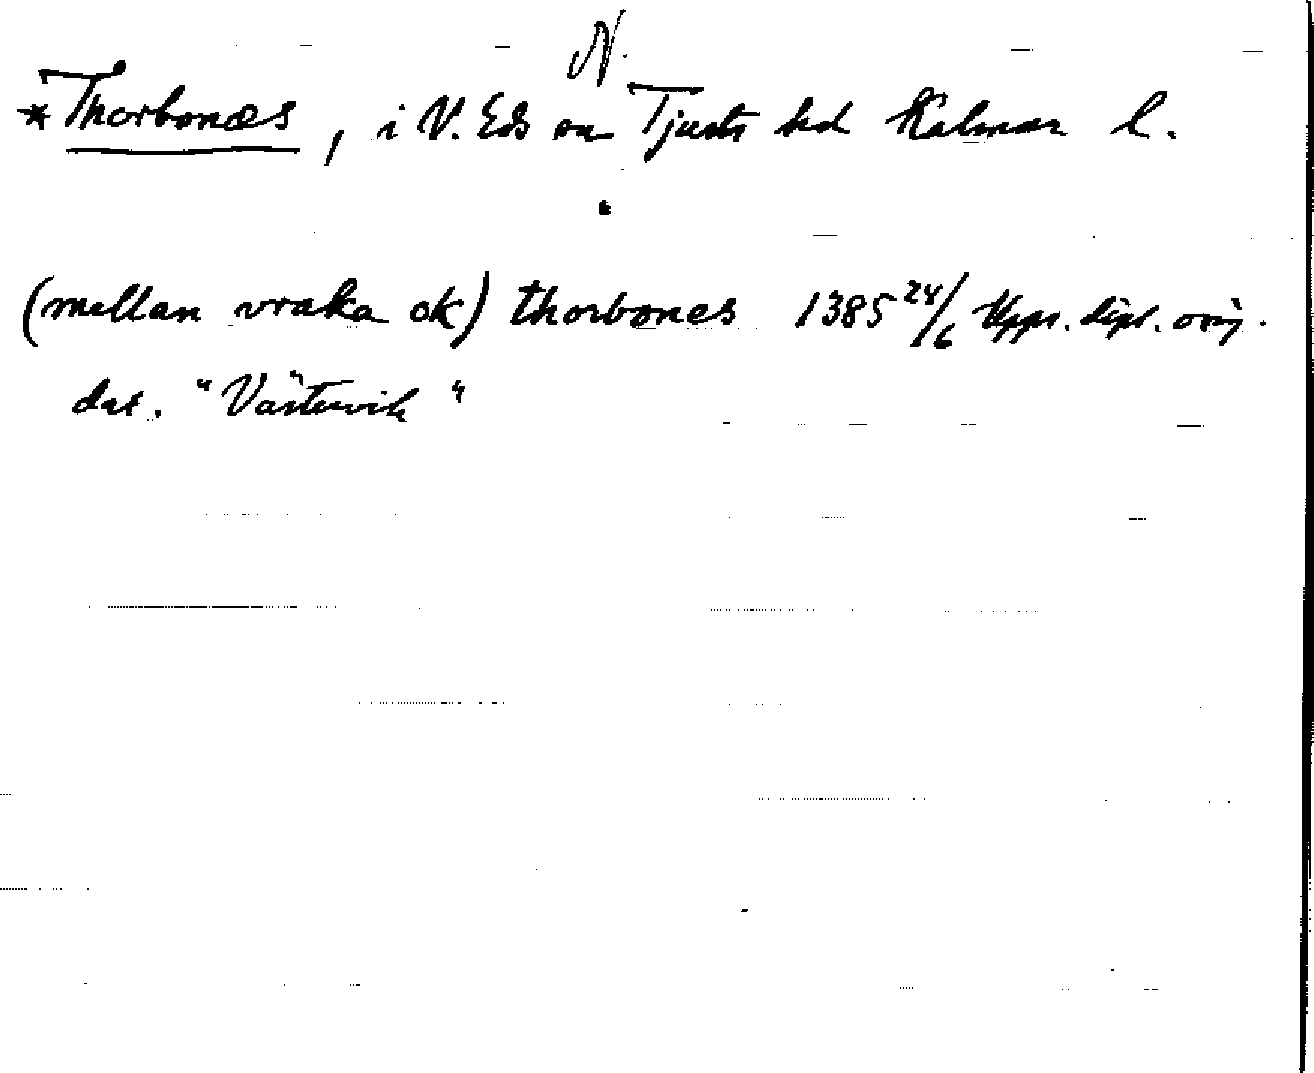 N.
*Thorbonæs, i V. Eds sn Tjusts hd Kalmar l.
(mellan vraka ok) thorbones 1385 24/6 Upps. dipl. orig.
dat. "Västervik"